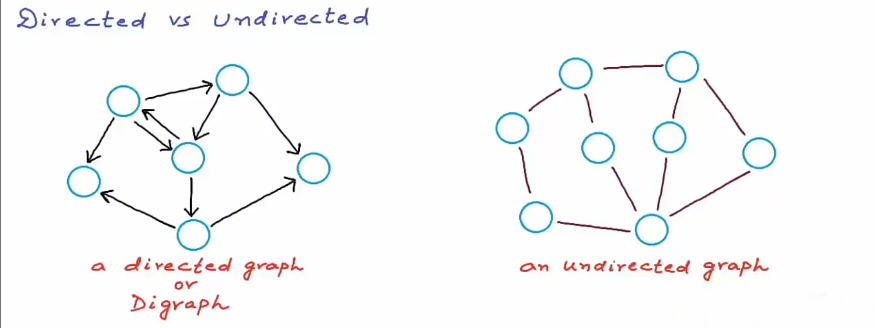 Directed vs Undirected
a directed graph
or
Digraph
an undirected graph